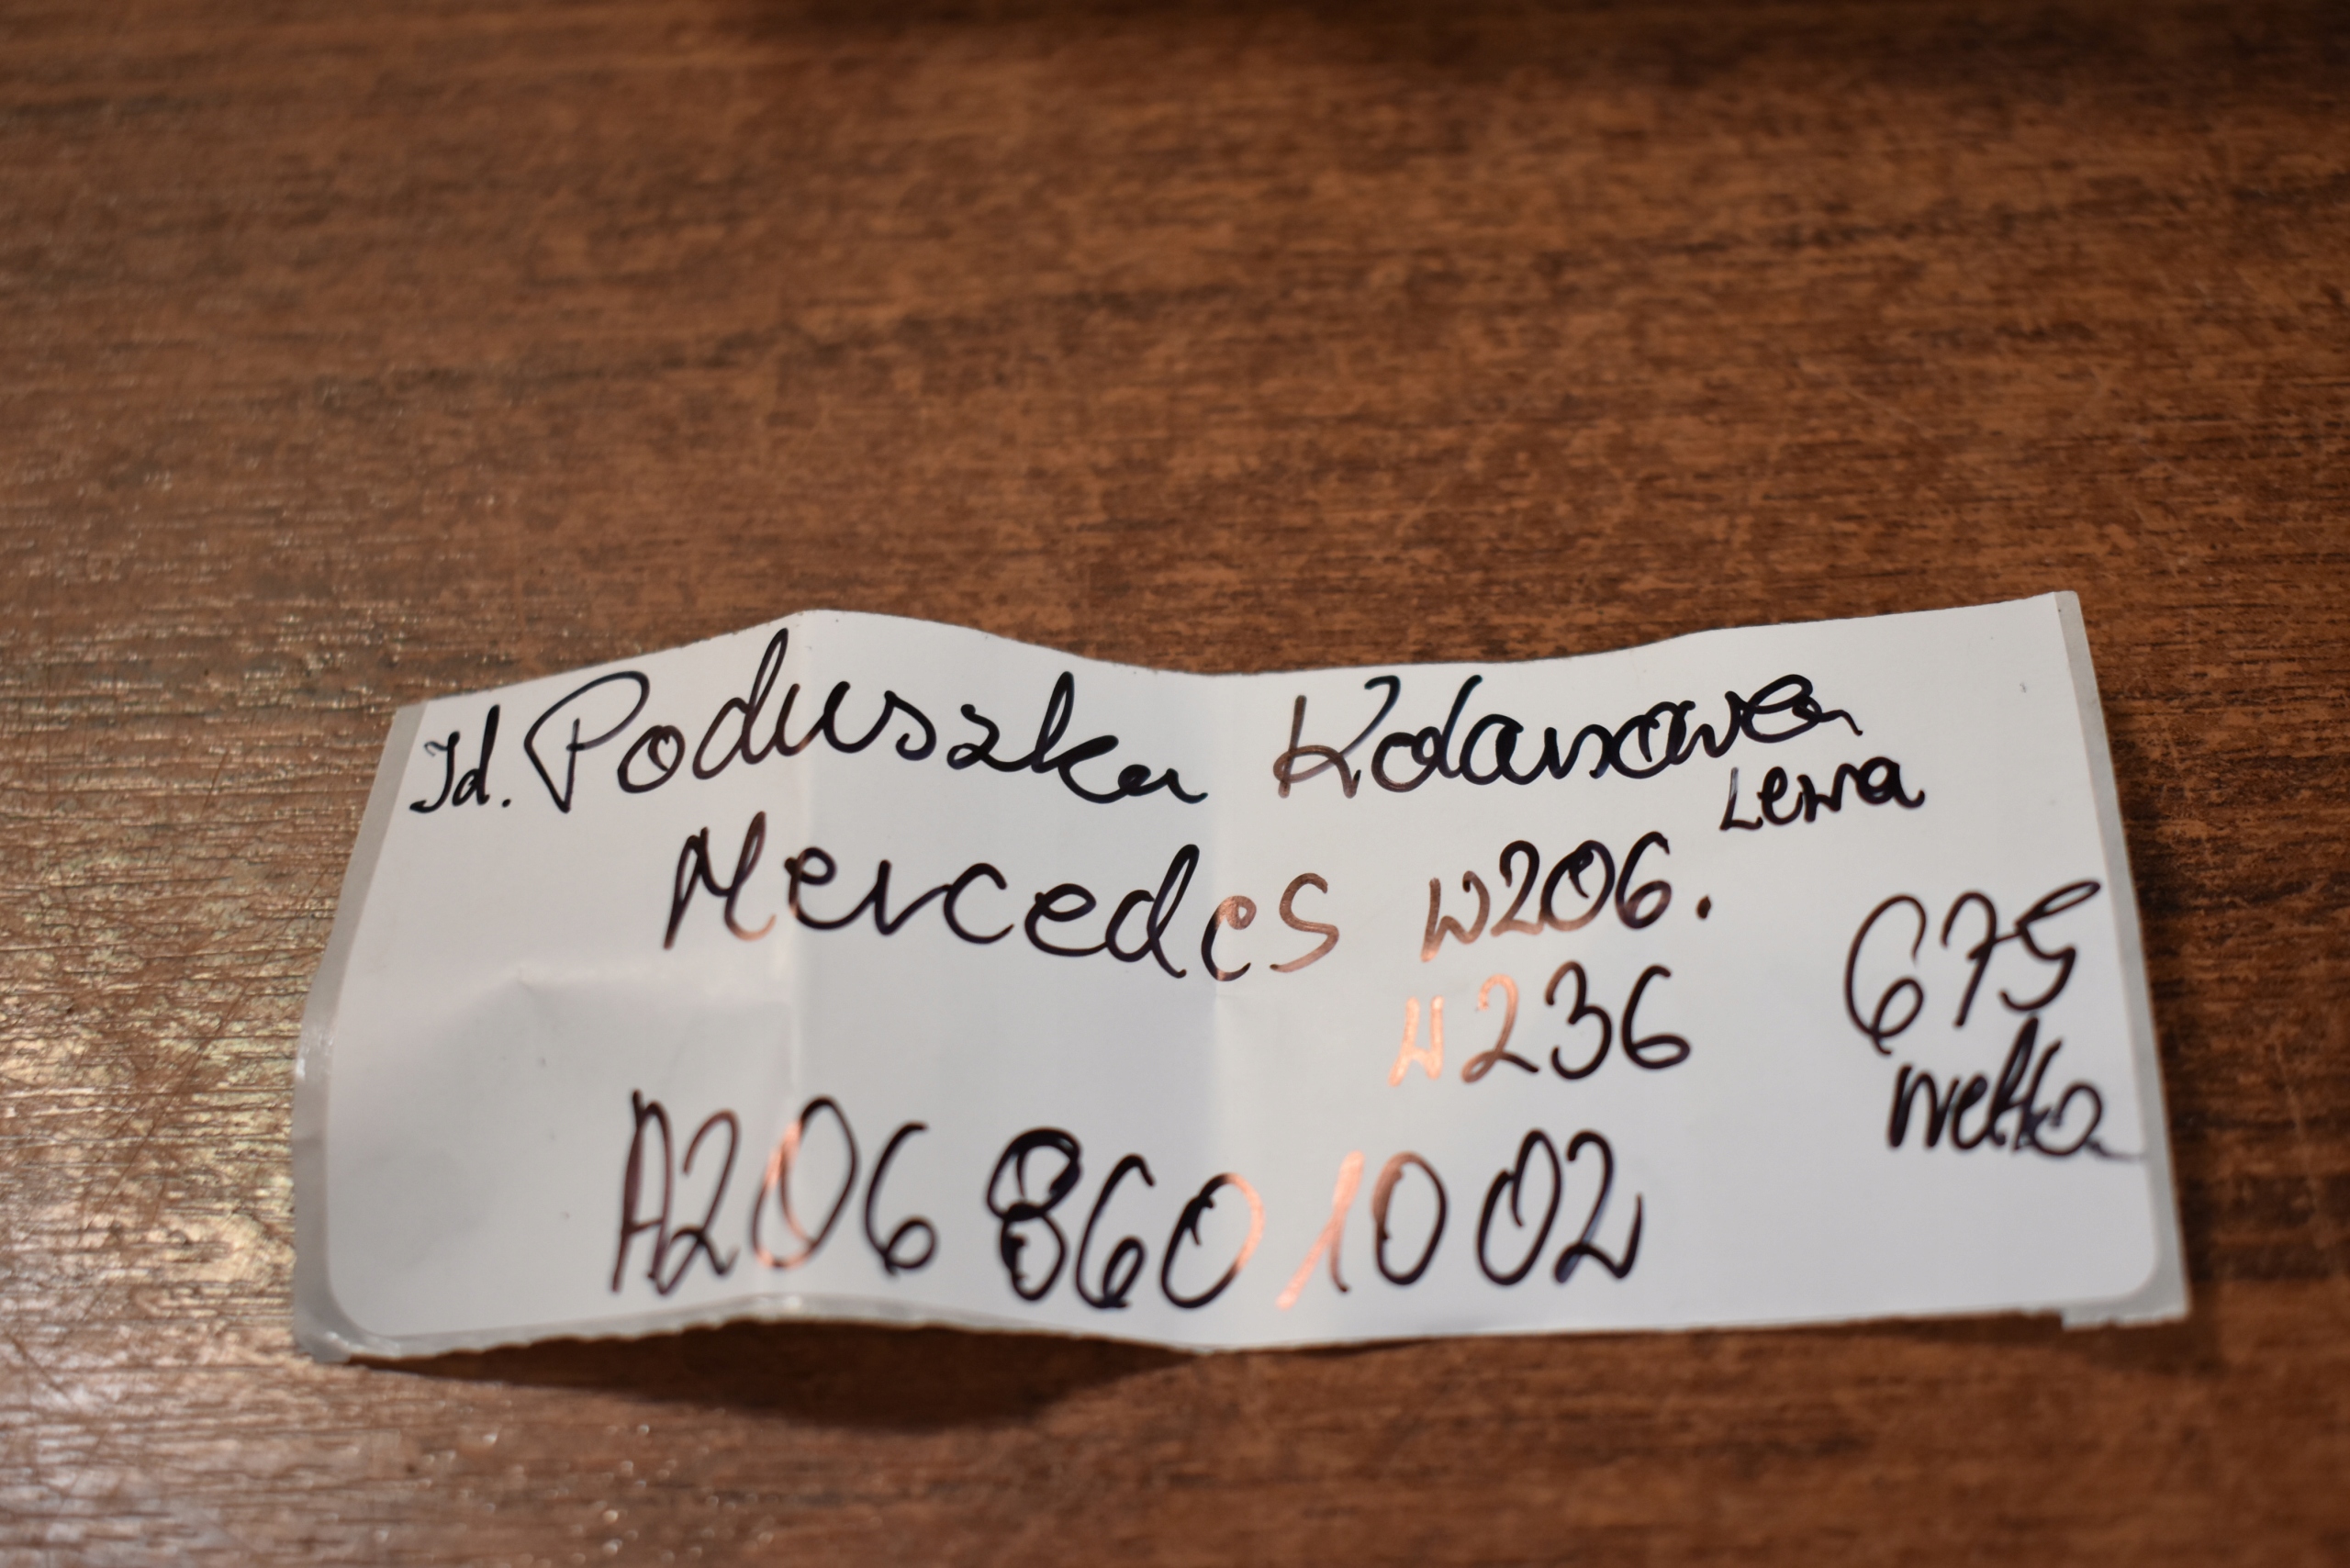 Id. Poduszka Kolanowa
Lewa
Mercedes W206.
W236
675
netto
A206 860 10 02